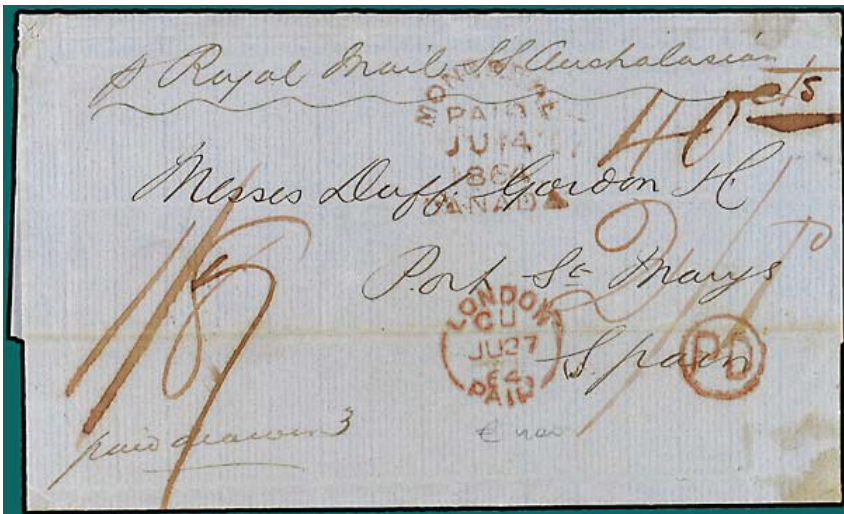 p Royal Mail SS Australasian
40 cts
MONTREAL
PAID
JU 14
1864
CANADA
Messrs Duff Gordon
Port St Marys
Spain
LONDON
CU
JU 27
64
PAID
PD
paid drawer 3